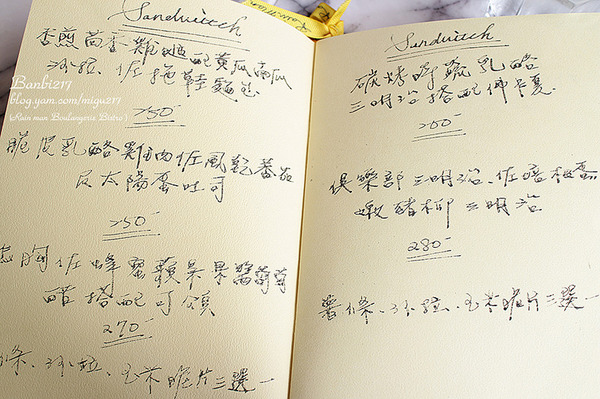 Sandwitch
香煎茴香雞腿配黃瓜南瓜
沙拉、佐拖鞋麵包
250
脆皮乳酪雞肉佐風乾番茄
及太陽蛋吐司
250
胸佐蜂蜜蘋果果醬葡萄
醋搭配可頌
270
條、沙拉、玉米脆片三選一
Sandwitch
碳烤時蔬乳酪
三明治搭配佛卡夏
250
俱樂部三明治、佐培根蛋
嫩豬柳三明治
280
薯條、沙拉、玉米脆片三選一
Banbi217
blog.yam.com/migu217
(Rain man Boulangerie Bistro)